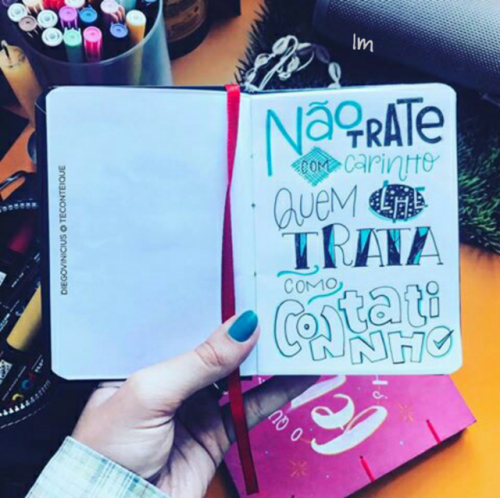 lm
DIEGOVINICIUS @ TECONTEIQUE
Não TRATE
COM carinho
Quem LHE
TRATA
COMO
CONtati
NNHO